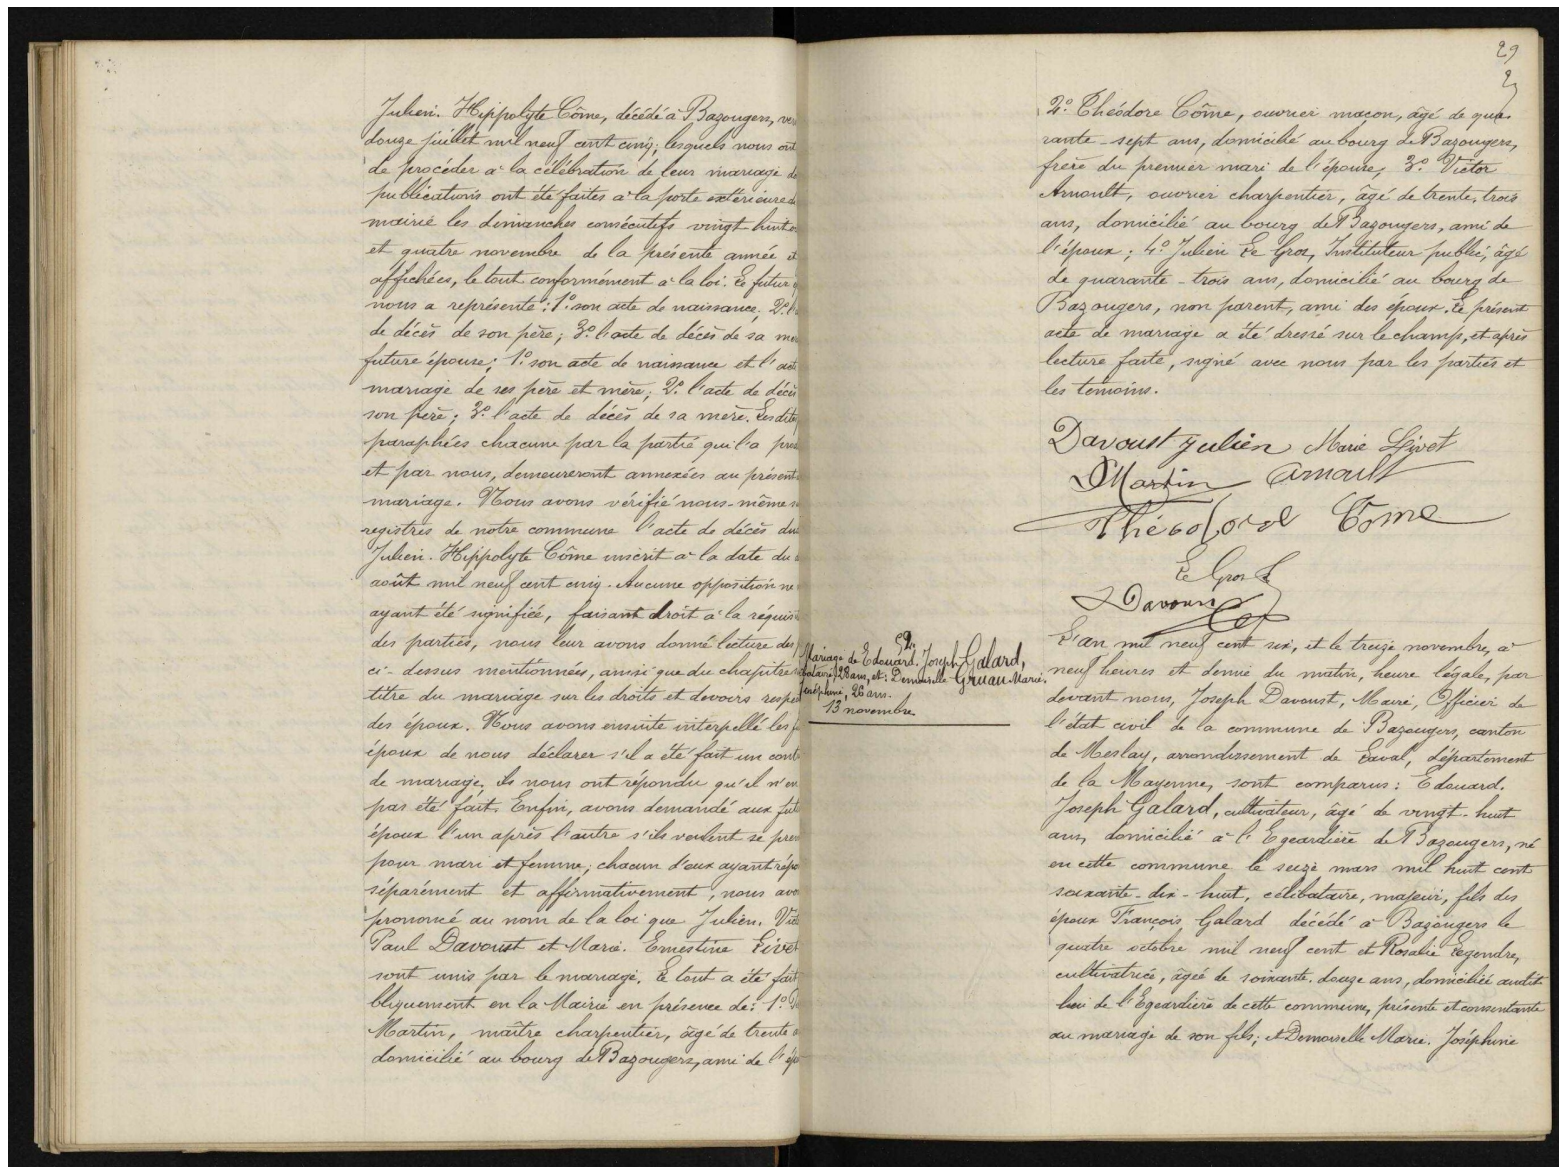 Julien. Hippolyte Côme, décédé à Bazougers,
douze juillet mil neuf cent cinq; lesquels nous ont
de procéder à la célébration de leur mariage
publications ont été faites à la porte extérieure
mairie les dimanches consécutifs vingt huit
et quatre novembre de la présente année et
affichées, le tout conformément à la loi. Le futur
nous a représenté: 1° son acte de naissance; 2°
de décès de son père; 3° l'acte de décès de sa
future épouse; 1° son acte de naissance et l'
mariage de ses père et mère; 2° l'acte de décès
son père; 3° l'acte de décès de sa mère. Les dites
paraphées chacune par la partie qui l'a
et par nous, demeureront annexées au présent
mariage. Nous avons vérifié nous-même
registres de notre commune l'acte de décès du
Julien. Hippolyte Côme inscrit à la date du
août mil neuf cent cinq. Aucune opposition ne
ayant été signifiée, faisant droit à la
des parties, nous leur avons donné lecture des
ci-dessus mentionnées, ainsi que du chapitre
titre du mariage sur les droits et devoirs
des époux. Nous avons ensuite interpellé les
époux de nous déclarer s'il a été fait un
de mariage, ils nous ont répondu qu'il n'en
pas été fait. Enfin, avons demandé aux
époux l'un après l'autre s'ils veulent se
pour mari et femme; chacun d'eux ayant
séparément et affirmativement, nous
prononcé au nom de la loi que Julien.
Paul Davoust et Marie. Ernestine Livet
sont unis par le mariage. Le tout a été fait
bliquement en la Mairie en présence de: 1°
Martin, maître charpentier, âgé de trente
domicilié au bourg de Bazougers, ami de
29
2° Théodore Côme, ouvrier maçon, âgé de qua
rante-sept ans, domicilié au bourg de Bazougers,
frère du premier mari de l'épouse, 3° Victor
Arnoult, ouvrier charpentier, âgé de trente-trois
ans, domicilié au bourg de Bazougers, ami de
l'époux; 4° Julien Le Gros, Instituteur public, âgé
de quarante-trois ans, domicilié au bourg de
Bazougers, non parent, ami des époux. Le présent
acte de mariage a été dressé sur le champ, et après
lecture faite, signé avec nous par les parties et
les témoins.
Davoust Julien Marie Livet
Martin Arnoult
Théodore Côme
Le Gros
Davoust
52
Mariage de Edouard. Joseph Galard,
28 ans, et: Demoiselle Gruau Marie.
Joséphine, 26 ans.
13 novembre
L'an mil neuf cent six, et le treize novembre, à
neuf heures et demie du matin, heure légale, par
devant nous, Joseph Davoust, Maire, Officier de
l'état civil de la commune de Bazougers, canton
de Meslay, arrondissement de Laval, département
de la Mayenne, sont comparus: Edouard.
Joseph Galard, cultivateur, âgé de vingt-huit
ans, domicilié à l'Egeardière de Bazougers, né
en cette commune le seize mars mil huit cent
soixante-dix-huit, célibataire, majeur, fils des
époux François Galard décédé à Bazougers le
quatre octobre mil neuf cent et Rosalie Legendre,
cultivatrice, âgée de soixante-douze ans, domiciliée audit
lieu de l'Egeardière de cette commune, présente et consentante
au mariage de son fils; et Demoiselle Marie. Joséphine